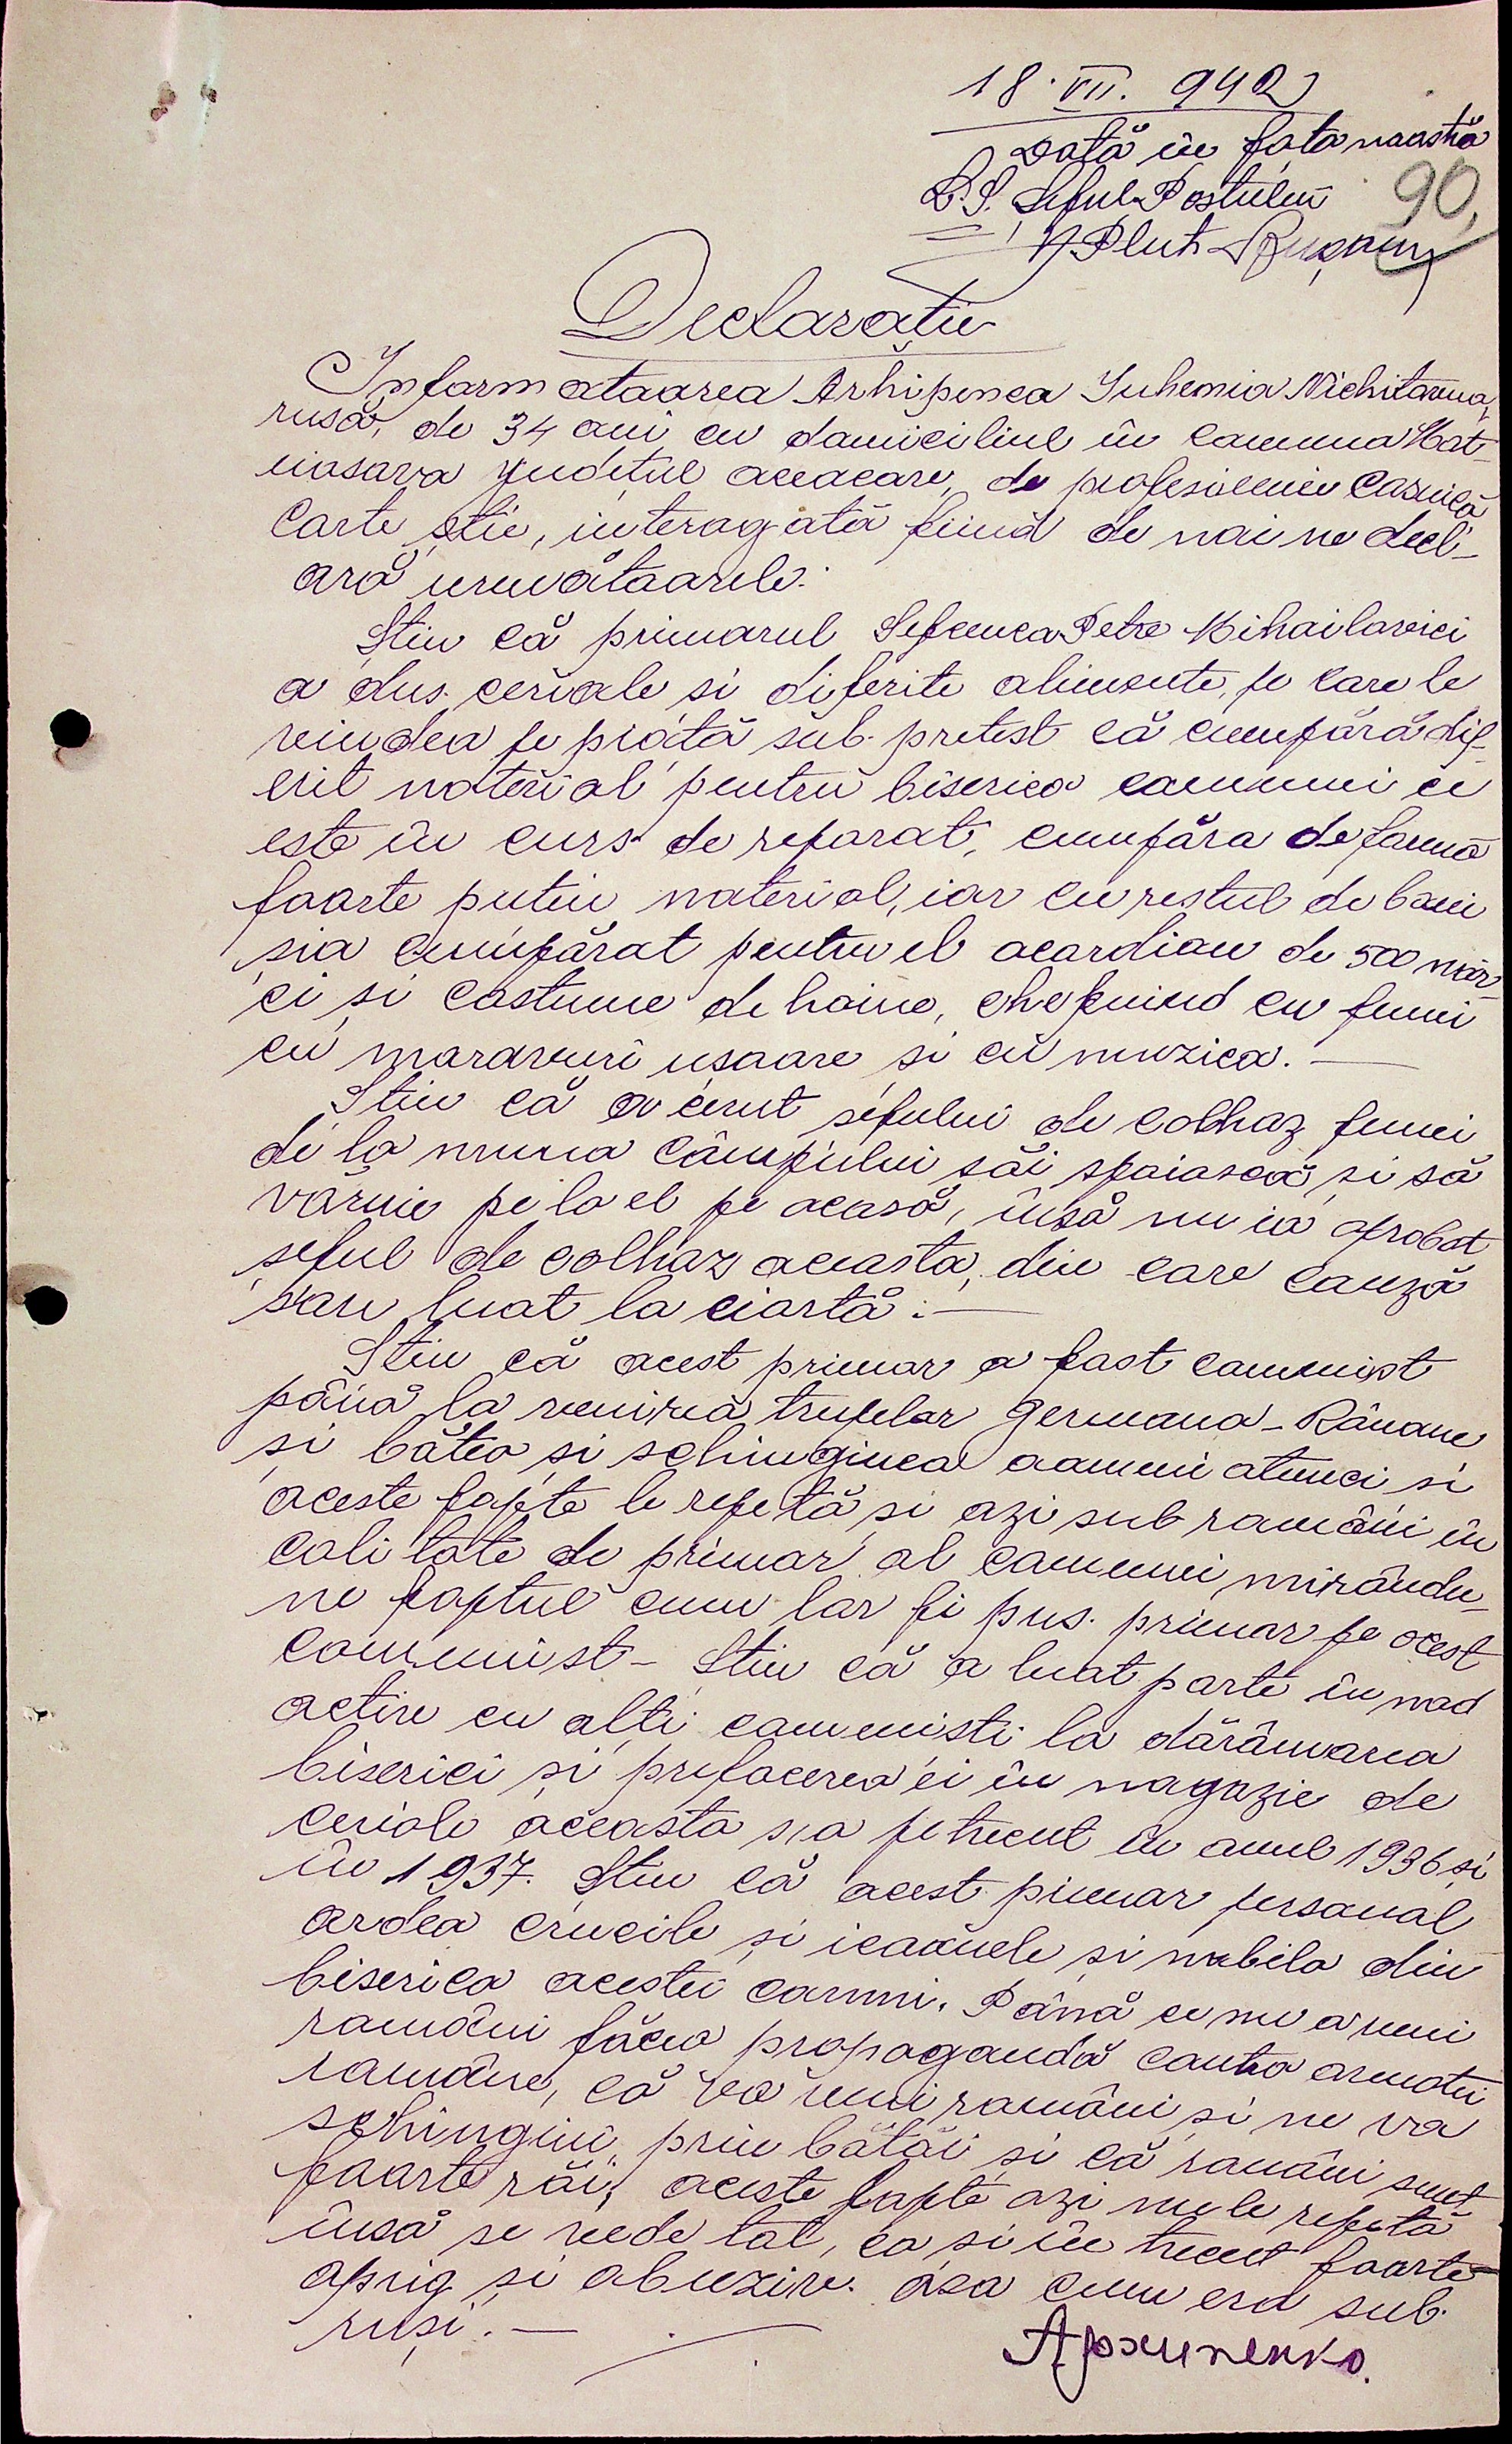 18. VII. 942
Dată în fața noastră
L.S. Șeful Postului 90,
Plut.
Declarație
Informatoarea Arhipenco Iuhemia Nichitovna,
rusă, de 34 ani cu domiciliul în comuna Mat-
iasova județul aceacare, de profesiune casnică
carte știe, interogată fiind de noi ne decl-
ară următoarele:
Știu că primarul Sefcenco Petre Mihailovici
a dus ceriale și diferite alimente, pe care le
vindea pe piață sub pretest că cumpără dif-
erit material pentru biserica comunei ce
este în curs de reparat, cumpăra de formă
foarte puțin material, iar cu restul de bani
șia cumpărat pentru el acordion de 500 măr-
ci și costume de haine, chefuind cu femei
cu moravuri ușoare și cu muzica. —
Știu că a cerut șefului de colhoz femei
de la munca câmpului săi spoiască și să
văruie pe la el pe acasă, însă nu ia aprobat
șeful de colhoz aceasta, din care cauză
sau luat la ciartă. —
Știu că acest primar a fost comunist
până la venirea trupelor Germano-Române
și bătea și schinginea oameni atunci și
aceste fapte le repetă și azi sub români în
calitate de primar al comunei mirându-
ne faptul cum lar fi pus primar pe acest
comunist - Știu că a luat parte în mod
activ cu alți comuniști la dărâmarea
biserici și prefacerea ei în magazie de
ceriale aceasta sa petrecut în anul 1936 și
în 1937. Știu că acest primar personal
ardea crucile și icoanele și mobila din
biserica acestei comni. Până ce nu a veni
români făcea propagandă contra armatei
române, că va veni români și ne va
schingiui prin bătăi și că români sunt
foarte răi, aceste fapte azi nu le repetă
însă se vede tot, ca și în trecut foarte
aprig și abuziv. așa cum era sub
ruși. —
Архипенко.